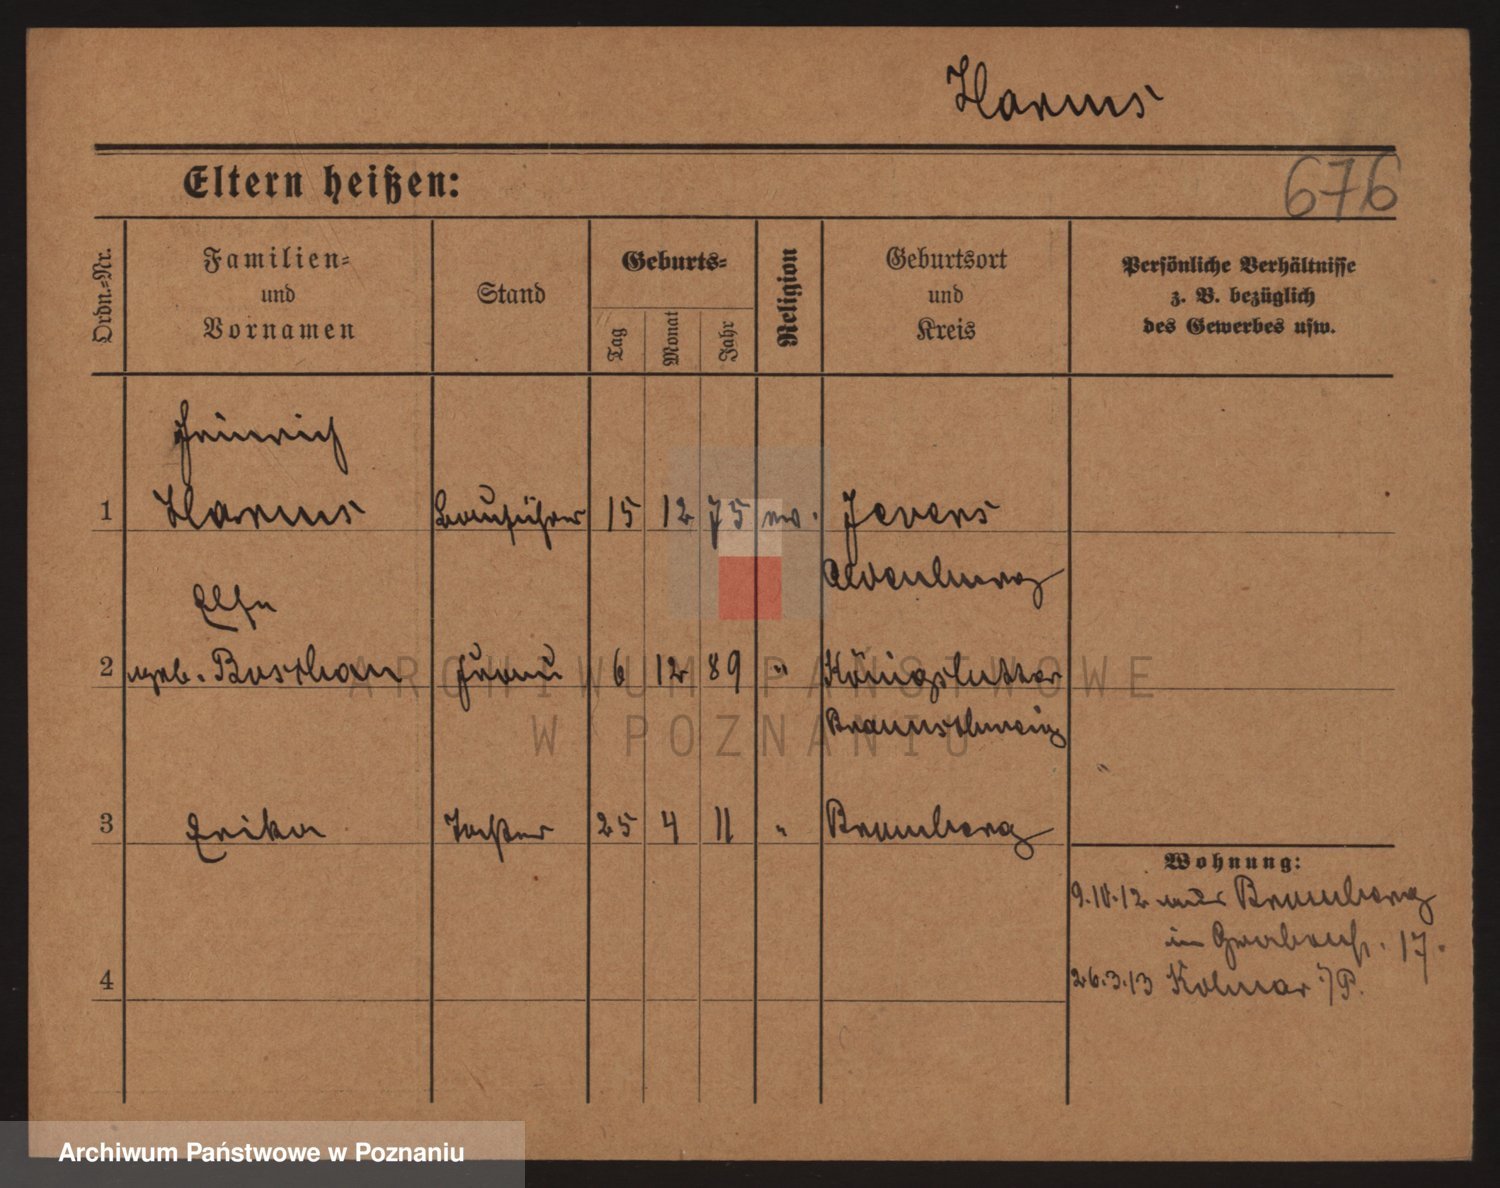 Harms
676
Eltern heißen:
Ordn.-Nr.
Familien-
und
Vornamen
Stand
Geburts-
Tag
Monat
Jahr
Religion
Geburtsort
und
Kreis
Persönliche Verhältnisse
z. B. bezüglich
des Gewerbes usw.
Heinrich
1 Harms Bauführer 15 12 75 ev. Jevers
Oldenburg
Else
2 geb. Frau 6 12 89 " Königslutter
Braunschweig
3 Erika Tochter 25 4 11 " Bromberg
Wohnung:
9.10.12 aus Bromberg
in 17.
4
26.3.13 Kolmar i/P.
ARCHIWUM PAŃSTWOWE
W POZNANIU
Archiwum Państwowe w Poznaniu